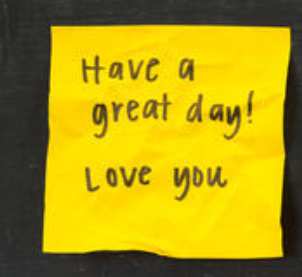 Have a
great day!
Love you